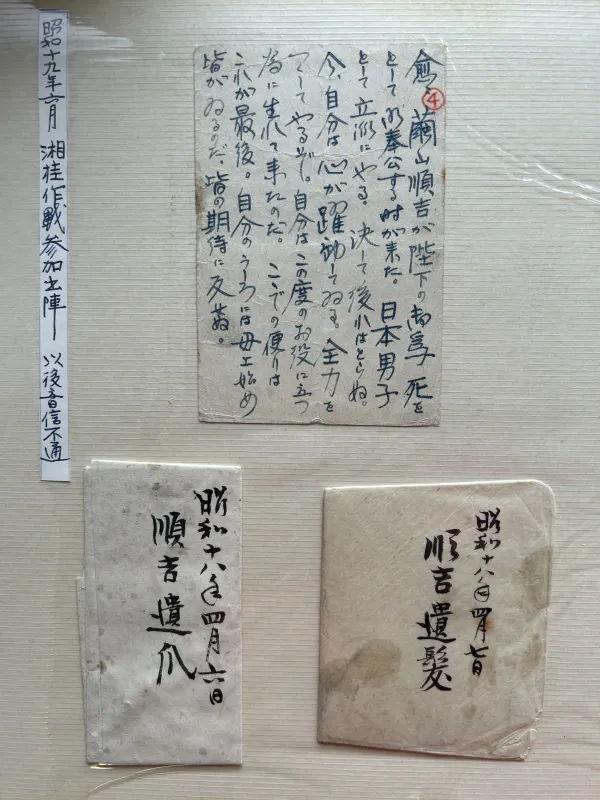 愈〻繭山順吉が陛下の御為、死を
として御奉公する時が来た。日本男子
として立派にやる。決して後れはとらぬ。
今、自分は心が躍動してゐる。全力を
つくしてやるぞ。自分はこの度のお役に立つ
為に生れて来たのだ。ここでの便りは
これが最後。自分のうしろには母上始め
皆がゐるのだ。皆の期待に反せぬ。
④
昭和十九年六月 湘桂作戦参加出陣 以後音信不通
昭和十八年四月七日
順吉遺髪
昭和十八年四月六日
順吉遺爪